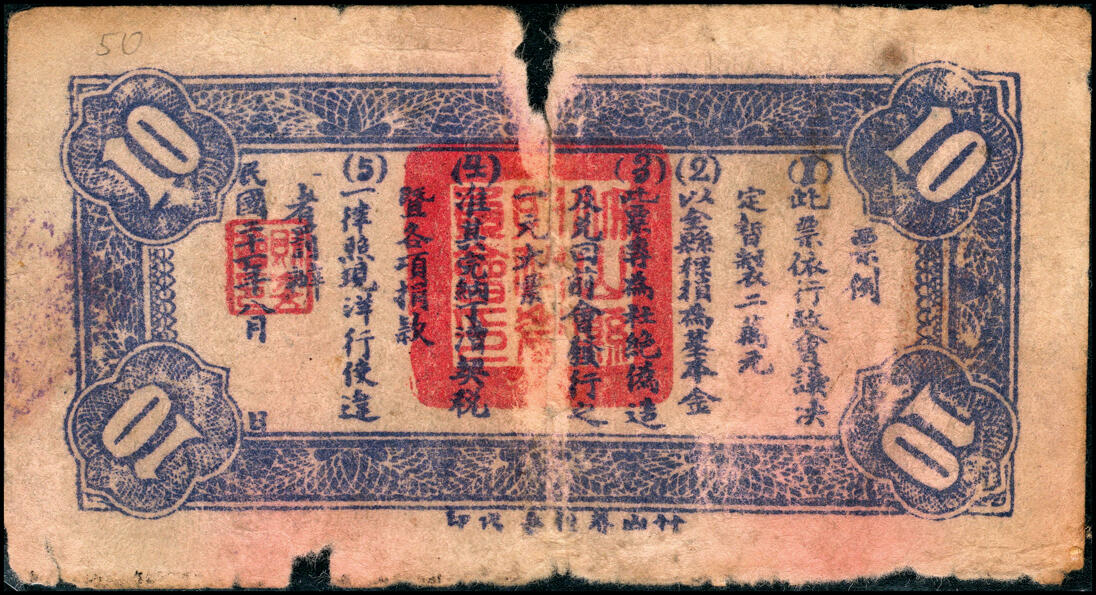 50
10
10
票例
(1)此票依行政會議決
定暫製二萬元
(2)以全縣捐為基本金
(3)此票專為杜絕偽造
及兌回前會發行之
一元
(4)准其完納丁漕契税
暨各項捐款
(5)一律照現洋行使違
者罰辦
民國二十年八月 日
10
10
代印